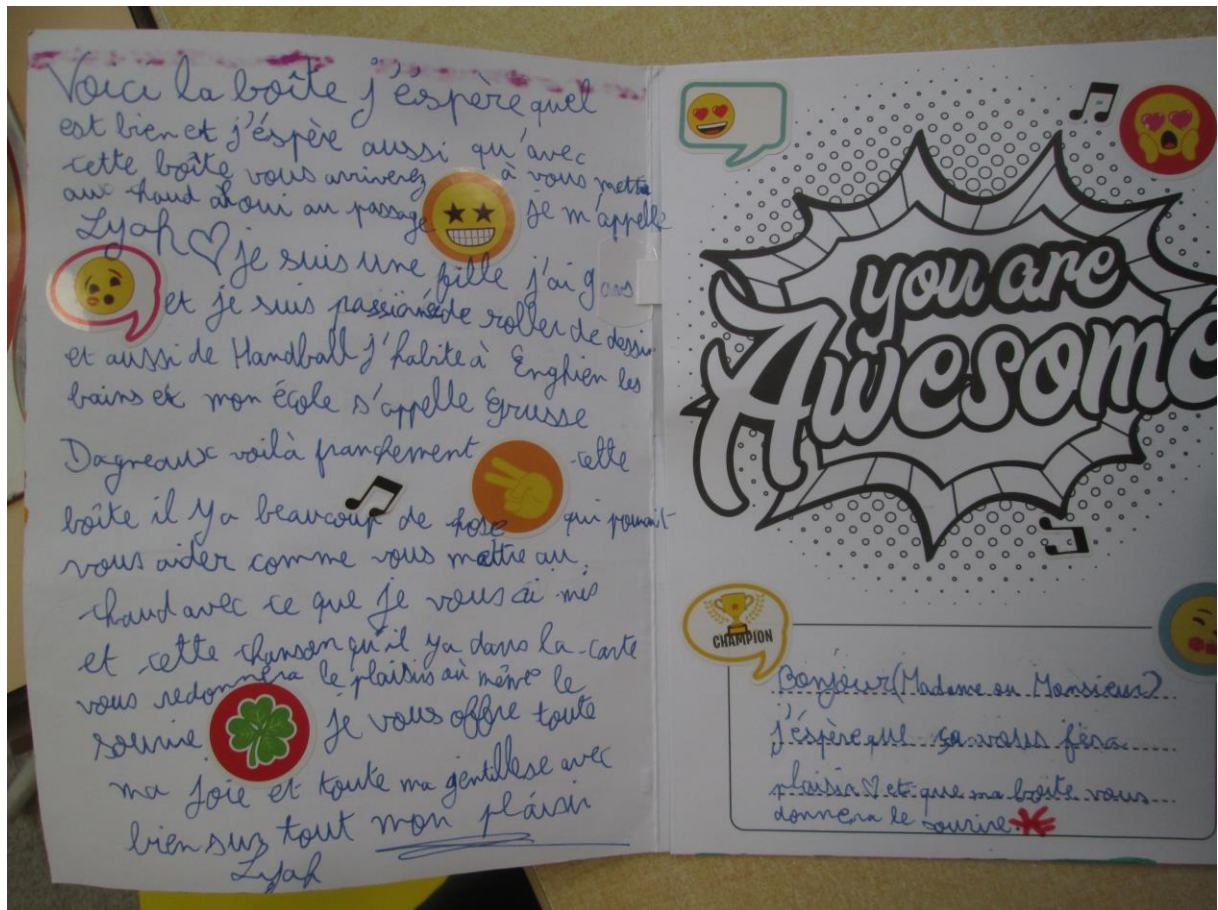 Voici la boîte j'éspère quel
est bien et j'éspère aussi qu'avec
cette boîte vous arriverez à vous mettre
aux chaud ahoui au passage je m'appelle
Lyah ♡ je suis une fille j'ai 9 ans
et je suis passionée de roller de dessin
et aussi de Handball j'habite à Enghien les
bains et mon école s'appelle Grusse
Dagneaux voilà franchement cette
boîte il y a beaucoup de chose qui pourrait
vous aider comme vous mettre au
chaud avec ce que je vous ai mis
et cette chanson qu'il y a dans la carte
vous redonnera le plaisir où même le
sourire je vous offre toute
ma joie et toute ma gentillesse avec
bien sur tout mon plaisir
Lyah
you are
Awesome
CHAMPION
Bonjour (Madame ou Monsieur)
j'espère que ça vous fera
plaisir ♡ et que ma boîte vous
donnera le sourire.